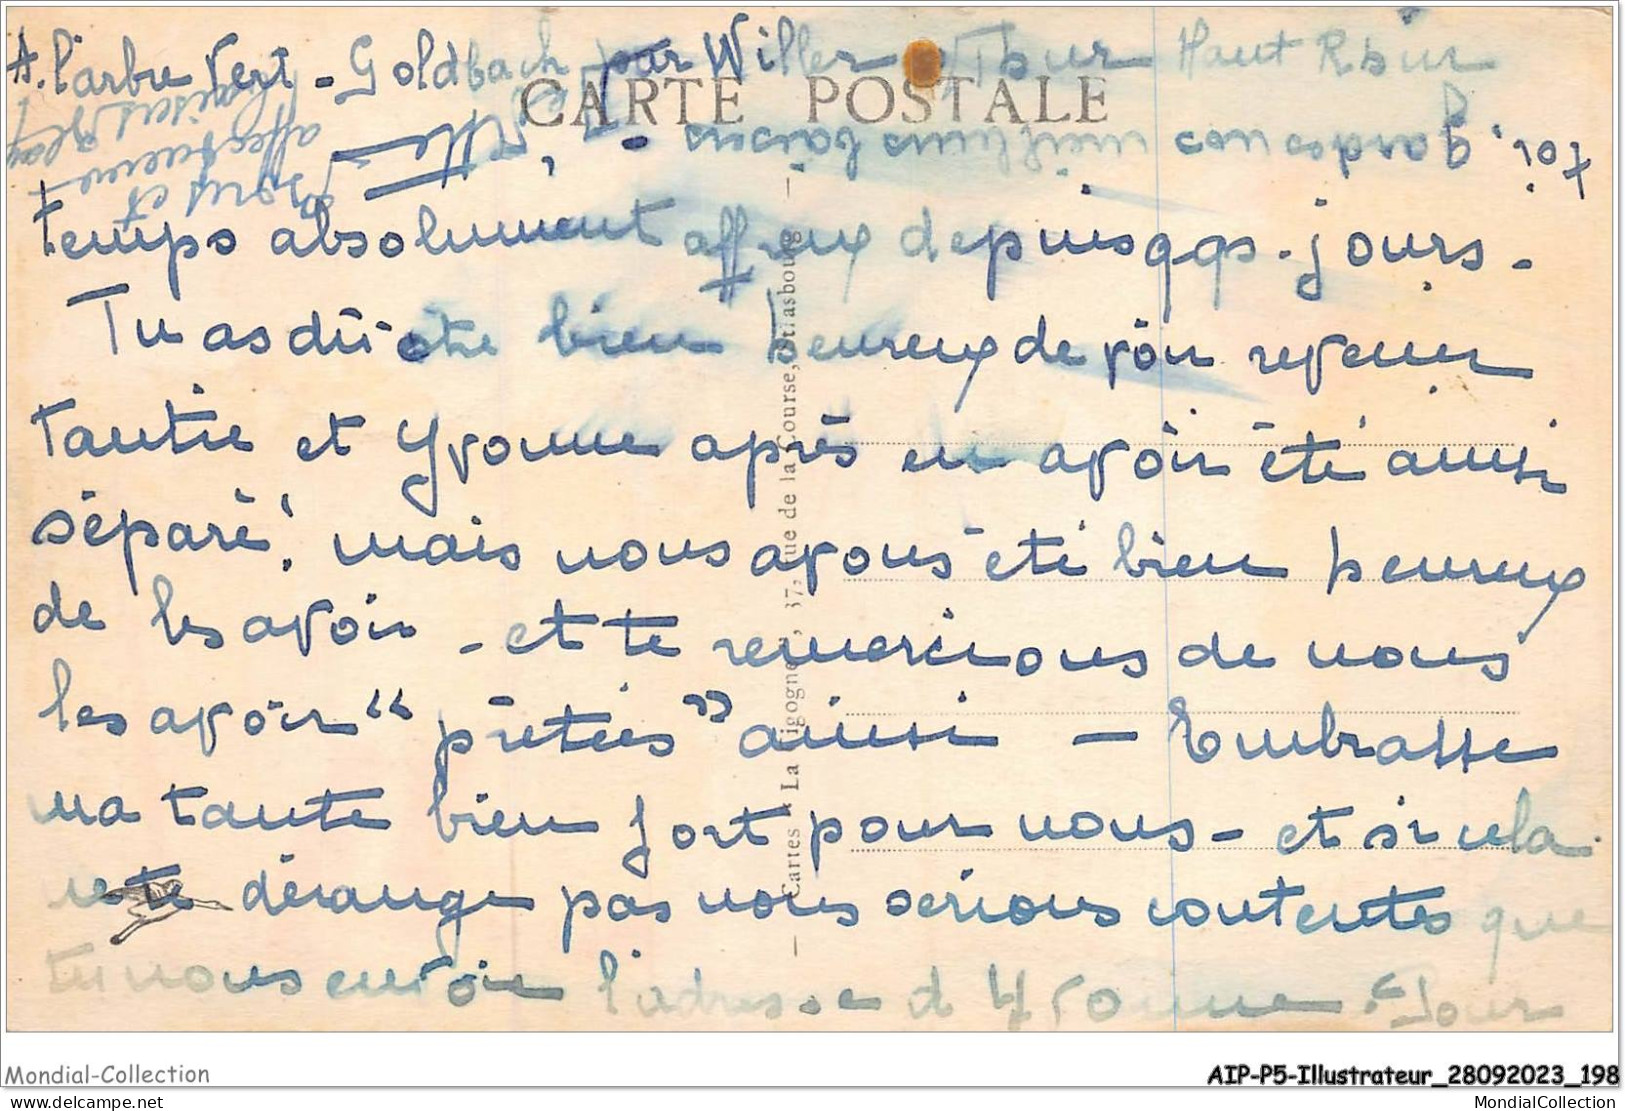 A. l'arbre Vert - Goldbach par Willer s/ Thur Haut Rhin
CARTE POSTALE
temps absolument affreux depuis qqs - jours -
Tu as dû être bien heureux de voir revenir
tantie et Yvonne après en avoir été ainsi
séparé ! mais nous avons été bien heureux
de les avoir - et te remercions de nous
les avoir “ prêtées ” ainsi — Embrasse
ma tante bien fort pour nous - et si cela
ne te dérange pas nous serions contentes que
tu nous envoie l'adresse d'Yvonne. Pour
toi, gardes nos meilleurs baisers -
Bons et
affectueux
Cartes " La Cigogne ", 37, rue de la Course, Strasbourg
Mondial-Collection
AIP-P5-Illustrateur_28092023_198
mondial-collection.com
MondialCollection